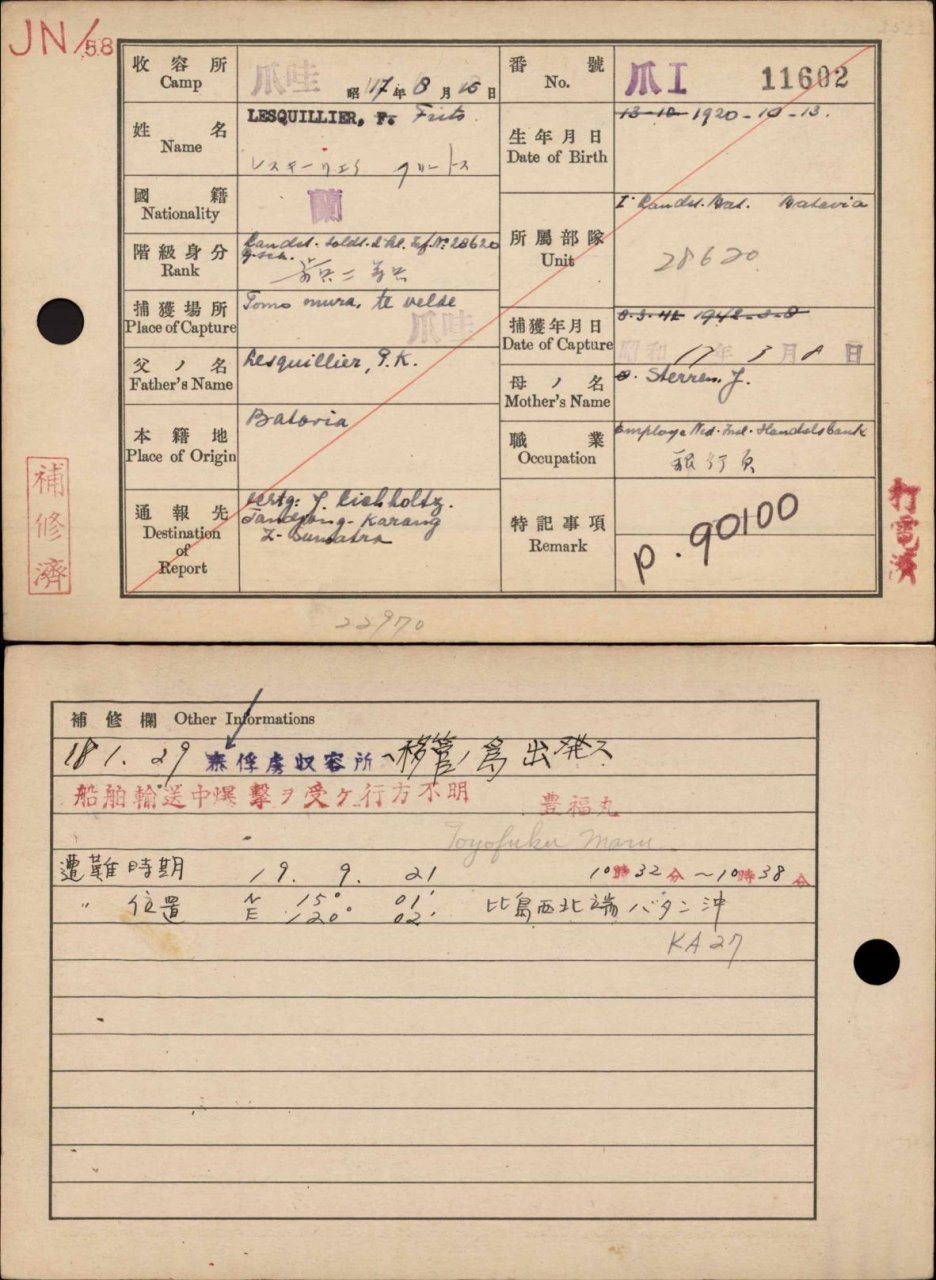 JN/58
收容所 Camp 爪哇 昭17年8月15日
番號 No. 爪I 11602
姓名 Name LESQUILLIER, F. Frits.
レスキーリエら フリートス
生年月日 Date of Birth 13-10- 1920-10-13.
國籍 Nationality 蘭
階級身分 Rank Landst. soldt. 2 kl. Inf. No. 28620
所屬部隊 Unit I Landst. Bat. Batavia
28620
捕獲場所 Place of Capture te velde
爪哇
捕獲年月日 Date of Capture 8.3.42 1942-3-8
昭和17年3月8日
父ノ名 Father's Name Lesquillier, P.K.
母ノ名 Mother's Name Sterren, J.
本籍地 Place of Origin Batavia
職業 Occupation Employe Ned. Ind. Handelsbank
銀行員
通報先 Destination of Report J. Eichholtz.
Tandjong-Karang
Z-Sumatra
特記事項 Remark p.90100
補修濟
打電濟
22970
補修欄 Other Informations
18 1. 29 泰俘虜収容所ヘ移管ノ為出発ス
船舶輸送中爆撃ヲ受ケ行方不明 豊福丸
Toyofuku Maru
遭難時期 19. 9. 21 10時32分~10時38分
〃 位置 N 15° 01' E 120° 02' 比島西北端バタン沖
KA 27